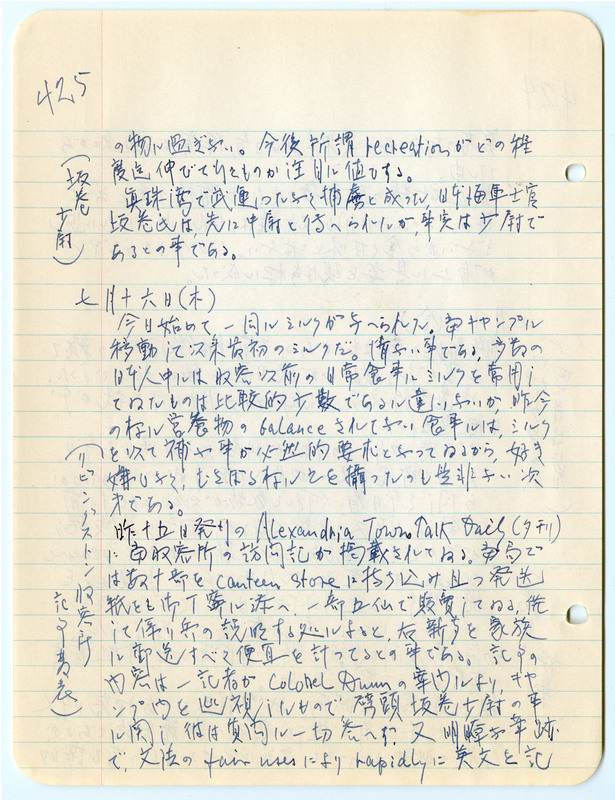 425
の物に過ぎない。今後所謂recreationがどの程
度迄伸びてゆくものか注目に値する。
(坂巻少尉)
真珠湾で武運つたなく捕虜と成った、日本海軍士官
坂巻氏は、先に中尉と伝へられたが、事実は少尉で
あるとの事である。
七月十六日(木)
今日始めて、一同にミルクが与へられた。当キャンプに
移動して以来最初のミルクだ。情ない事である、多数の
日本人中には収容以前の日常食事にミルクを常用し
てゐたものは比較的少数であるに違いないが、昨今
の様に営養物のbalanceされてない食事には、ミルク
を以て補ふ事が必然的要求となってゐるから、好き
嫌ひなく、むさぼる様にそを摂ったのも是非ない次
第である。
(リビングストン収容所 記事発表)
昨十五日発行のAlexandria Town Talk Daily(夕刊)
に当収容所の訪問記が掲載されてゐる。当局で
は数十部をcanteen storeに持ち込み且つ発送
紙をも御丁寧に添へ、一部五仙で販賣してゐる、
係り兵の説明する処によると、右新聞を家族
に郵送すべく便宜を計ってるとの事である。記事の
内容は一記者がColonel Dunnの案内により、キャ
ンプ内を巡視したもので劈頭坂巻少尉の事
に関し彼は質問に一切答へず、又明瞭な筆跡
で、文法のfair usesによりrapidlyに英文を記